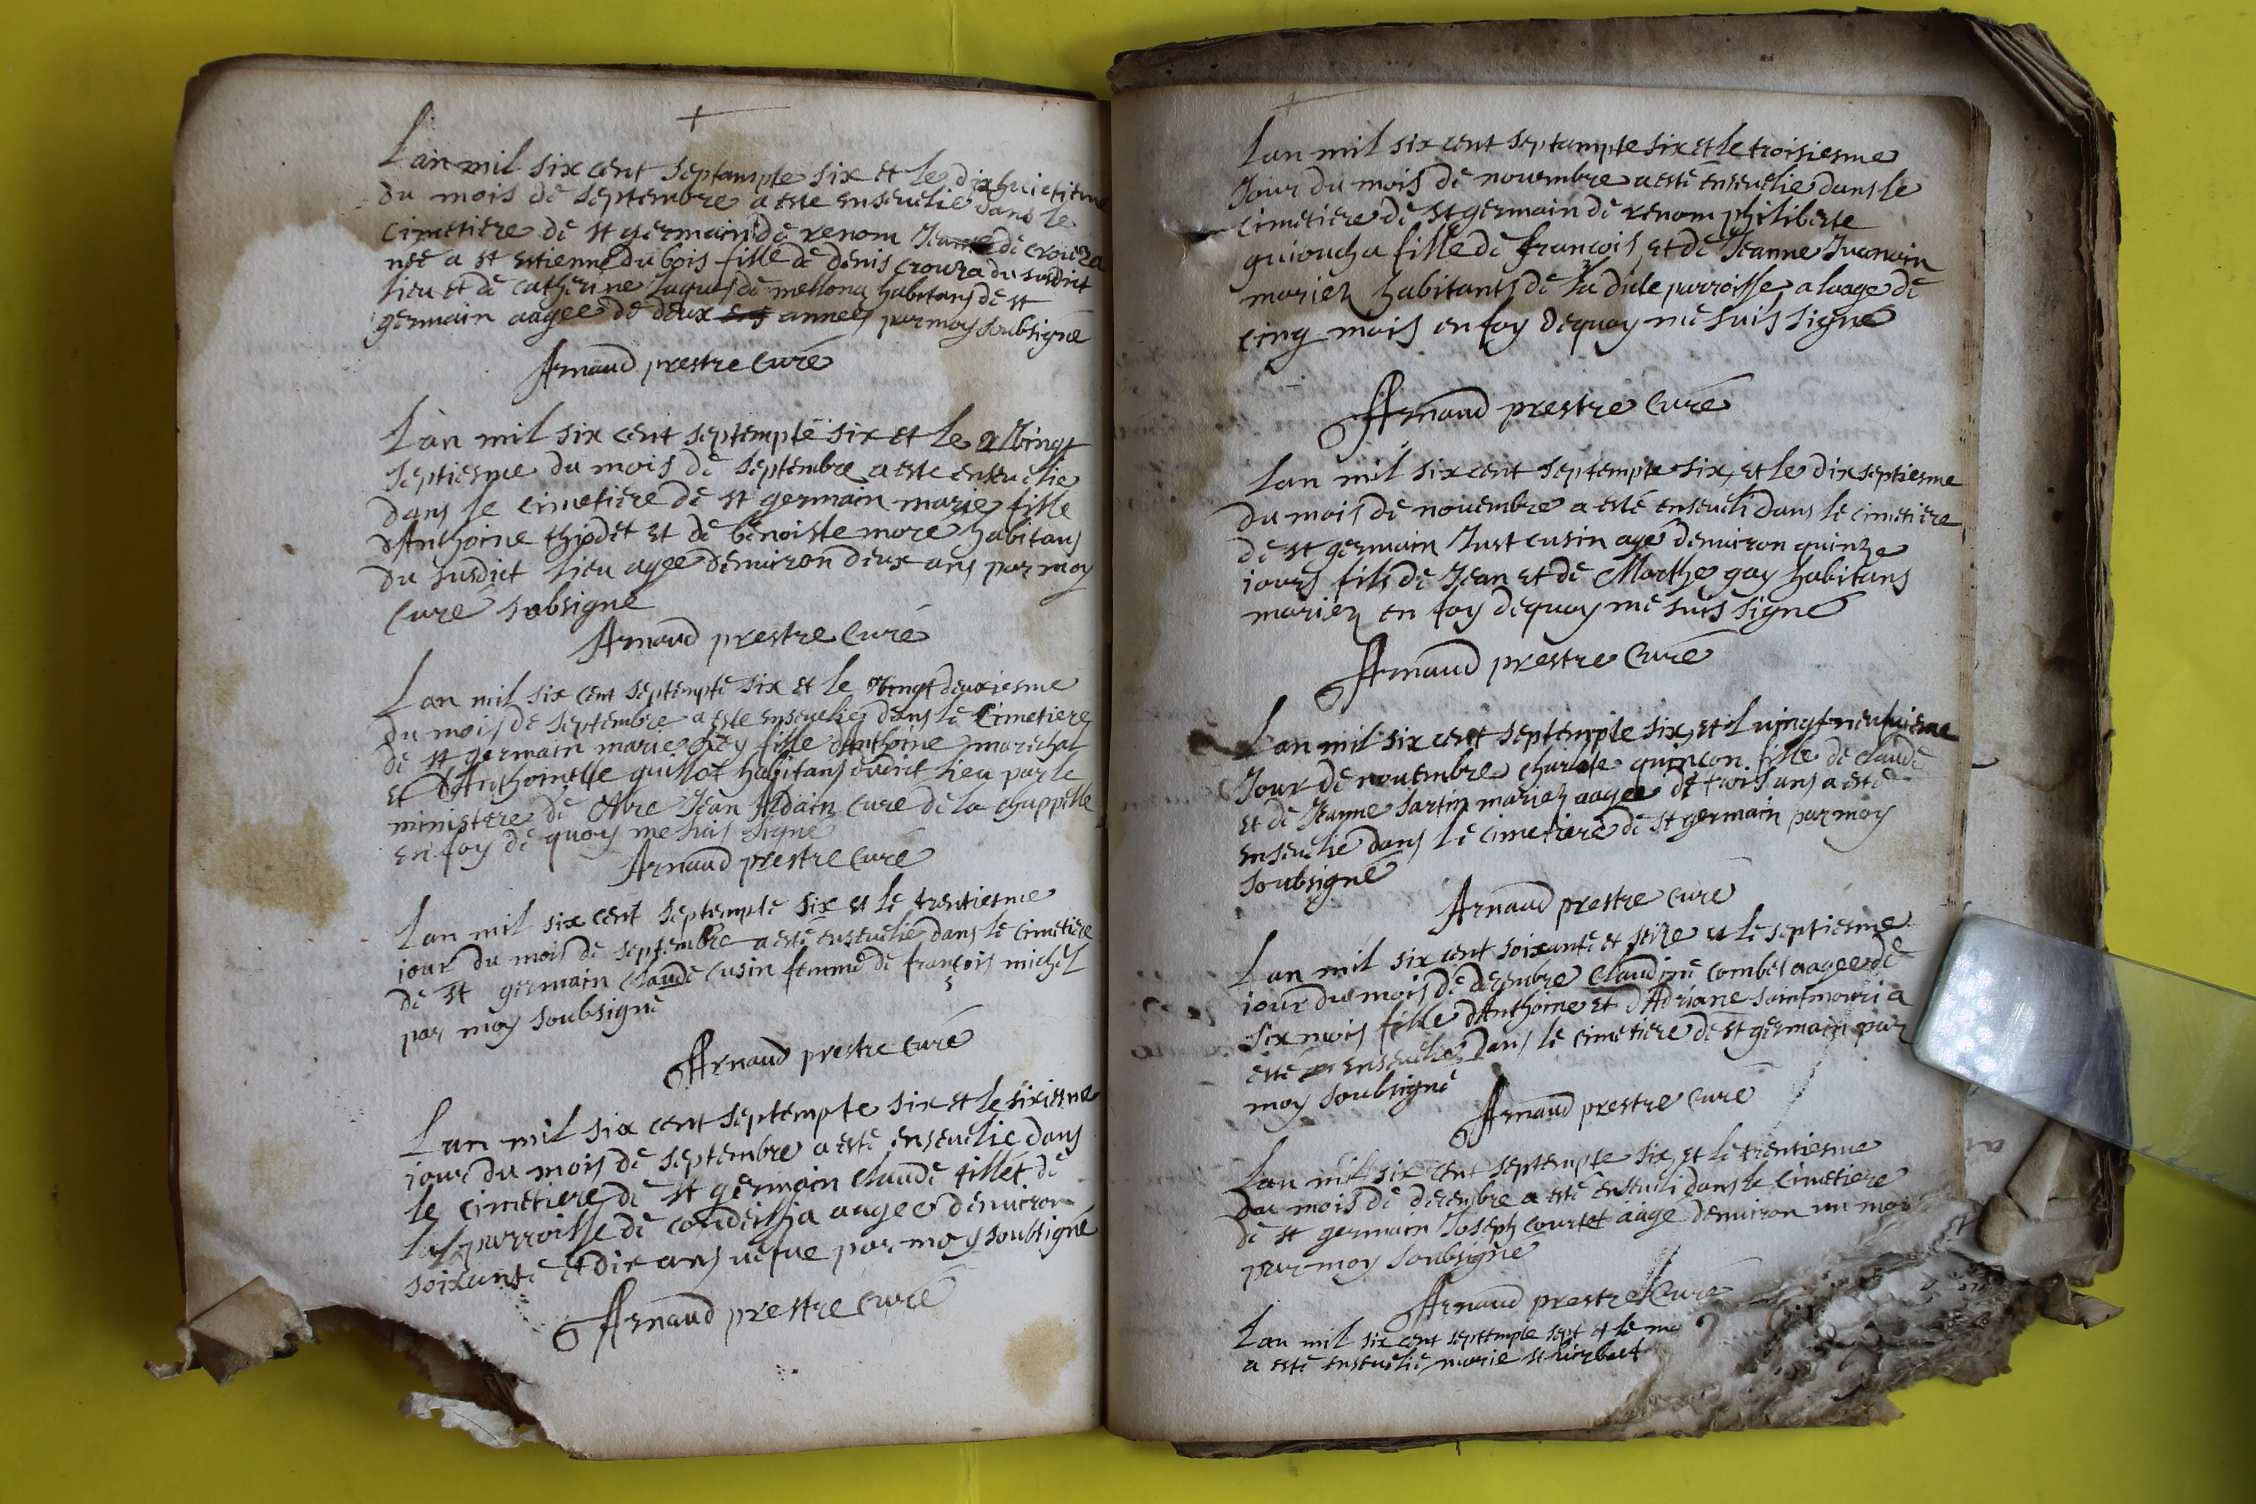 Lan mil six cent septampte six et le dixhuictieme
du mois de septembre a este enseuelie dans le
cimetiere de st germain de renom Jeanne de crouza
née a st estienne du bois fille de denis crouza du susdict
lieu et de catherine Jaques de mellona habitans de st
germain aagee de deux annees par moy soubsigné
Arnaud prestre curé
Lan mil six cent septempte six et le vingt
septiesme du mois de septembre a este enseuelie
dans le cimetiere de st germain marie fille
dAnthoine thiodet et de benoiste moré habitans
du susdict lieu agee denuiron deux ans par moy
curé subsigné
Arnaud prestre curé
Lan mil six cent septempte six et le vingt deuxiesme
du mois de septembre a este enseuelie dans le cimetiere
de st germain marie fille dAnthoine marechal
et dAnthoinette guillot habitans dudict lieu par le
ministere de Jean Adain curé de la chappelle
en foy de quoy me suis signé
Arnaud prestre curé
Lan mil six cent septempte six et le trentiesme
jour du mois de septembre a esté enseuelie dans le cimetiere
de st germain claude cusin femme de françois michel
par moy soubsigné
Arnaud prestre curé
Lan mil six cent septempte six et le sixiesme
jour du mois de septembre a esté enseuelie dans
le cimetiere de st germain claude tillet de
la parroisse de condeissia aagee denuiron
soixante et dix ans uefue par moy soubsigné
Arnaud prestre curé
Lan mil six cent septampte six et le troisiesme
Jour du mois de nouembre a esté enseuelie dans le
cimetiere de st germain de renom philiberte
guioucha fille de françois et de Jeanne Juanain
mariez habitants de la dicte parroisse a laage de
cinq mois en foy dequoy me suis signé
Arnaud prestre curé
Lan mil six cent septempte six et le dix septiesme
du mois de nouembre a esté enseueli dans le cimetiere
de st germain Just cusin agé denuiron quinze
jours fils de Jean et de Marthe gay habitans
mariez en foy dequoy me suis signé
Arnaud prestre curé
Lan mil six cent septempte six et l vingt neufuieme
Jour de nouembre charlote guincon fille de claude
et de Jeanne Sartin mariez aagee de trois ans a esté
enseuelie dans le cimetiere de st germain par moy
soubsigné
Arnaud prestre curé
Lan mil six cent soixante et seize et le septiesme
jour du mois de decembre claudine combes aagee de
six mois fille dAnthoine et dAdriane saintmouri a
esté enseuelie dans le cimetiere de st germain par
moy soubsigné
Arnaud prestre curé
Lan mil six cent septempte six et le trentiesme
du mois de decembre a esté enseueli dans le cimetiere
de st germain Joseph courtet aagé denuiron un moi
par moy soubsigné
Arnaud prestre Curé
Lan mil six cent septempte sept et le
a esté enseuelie marie